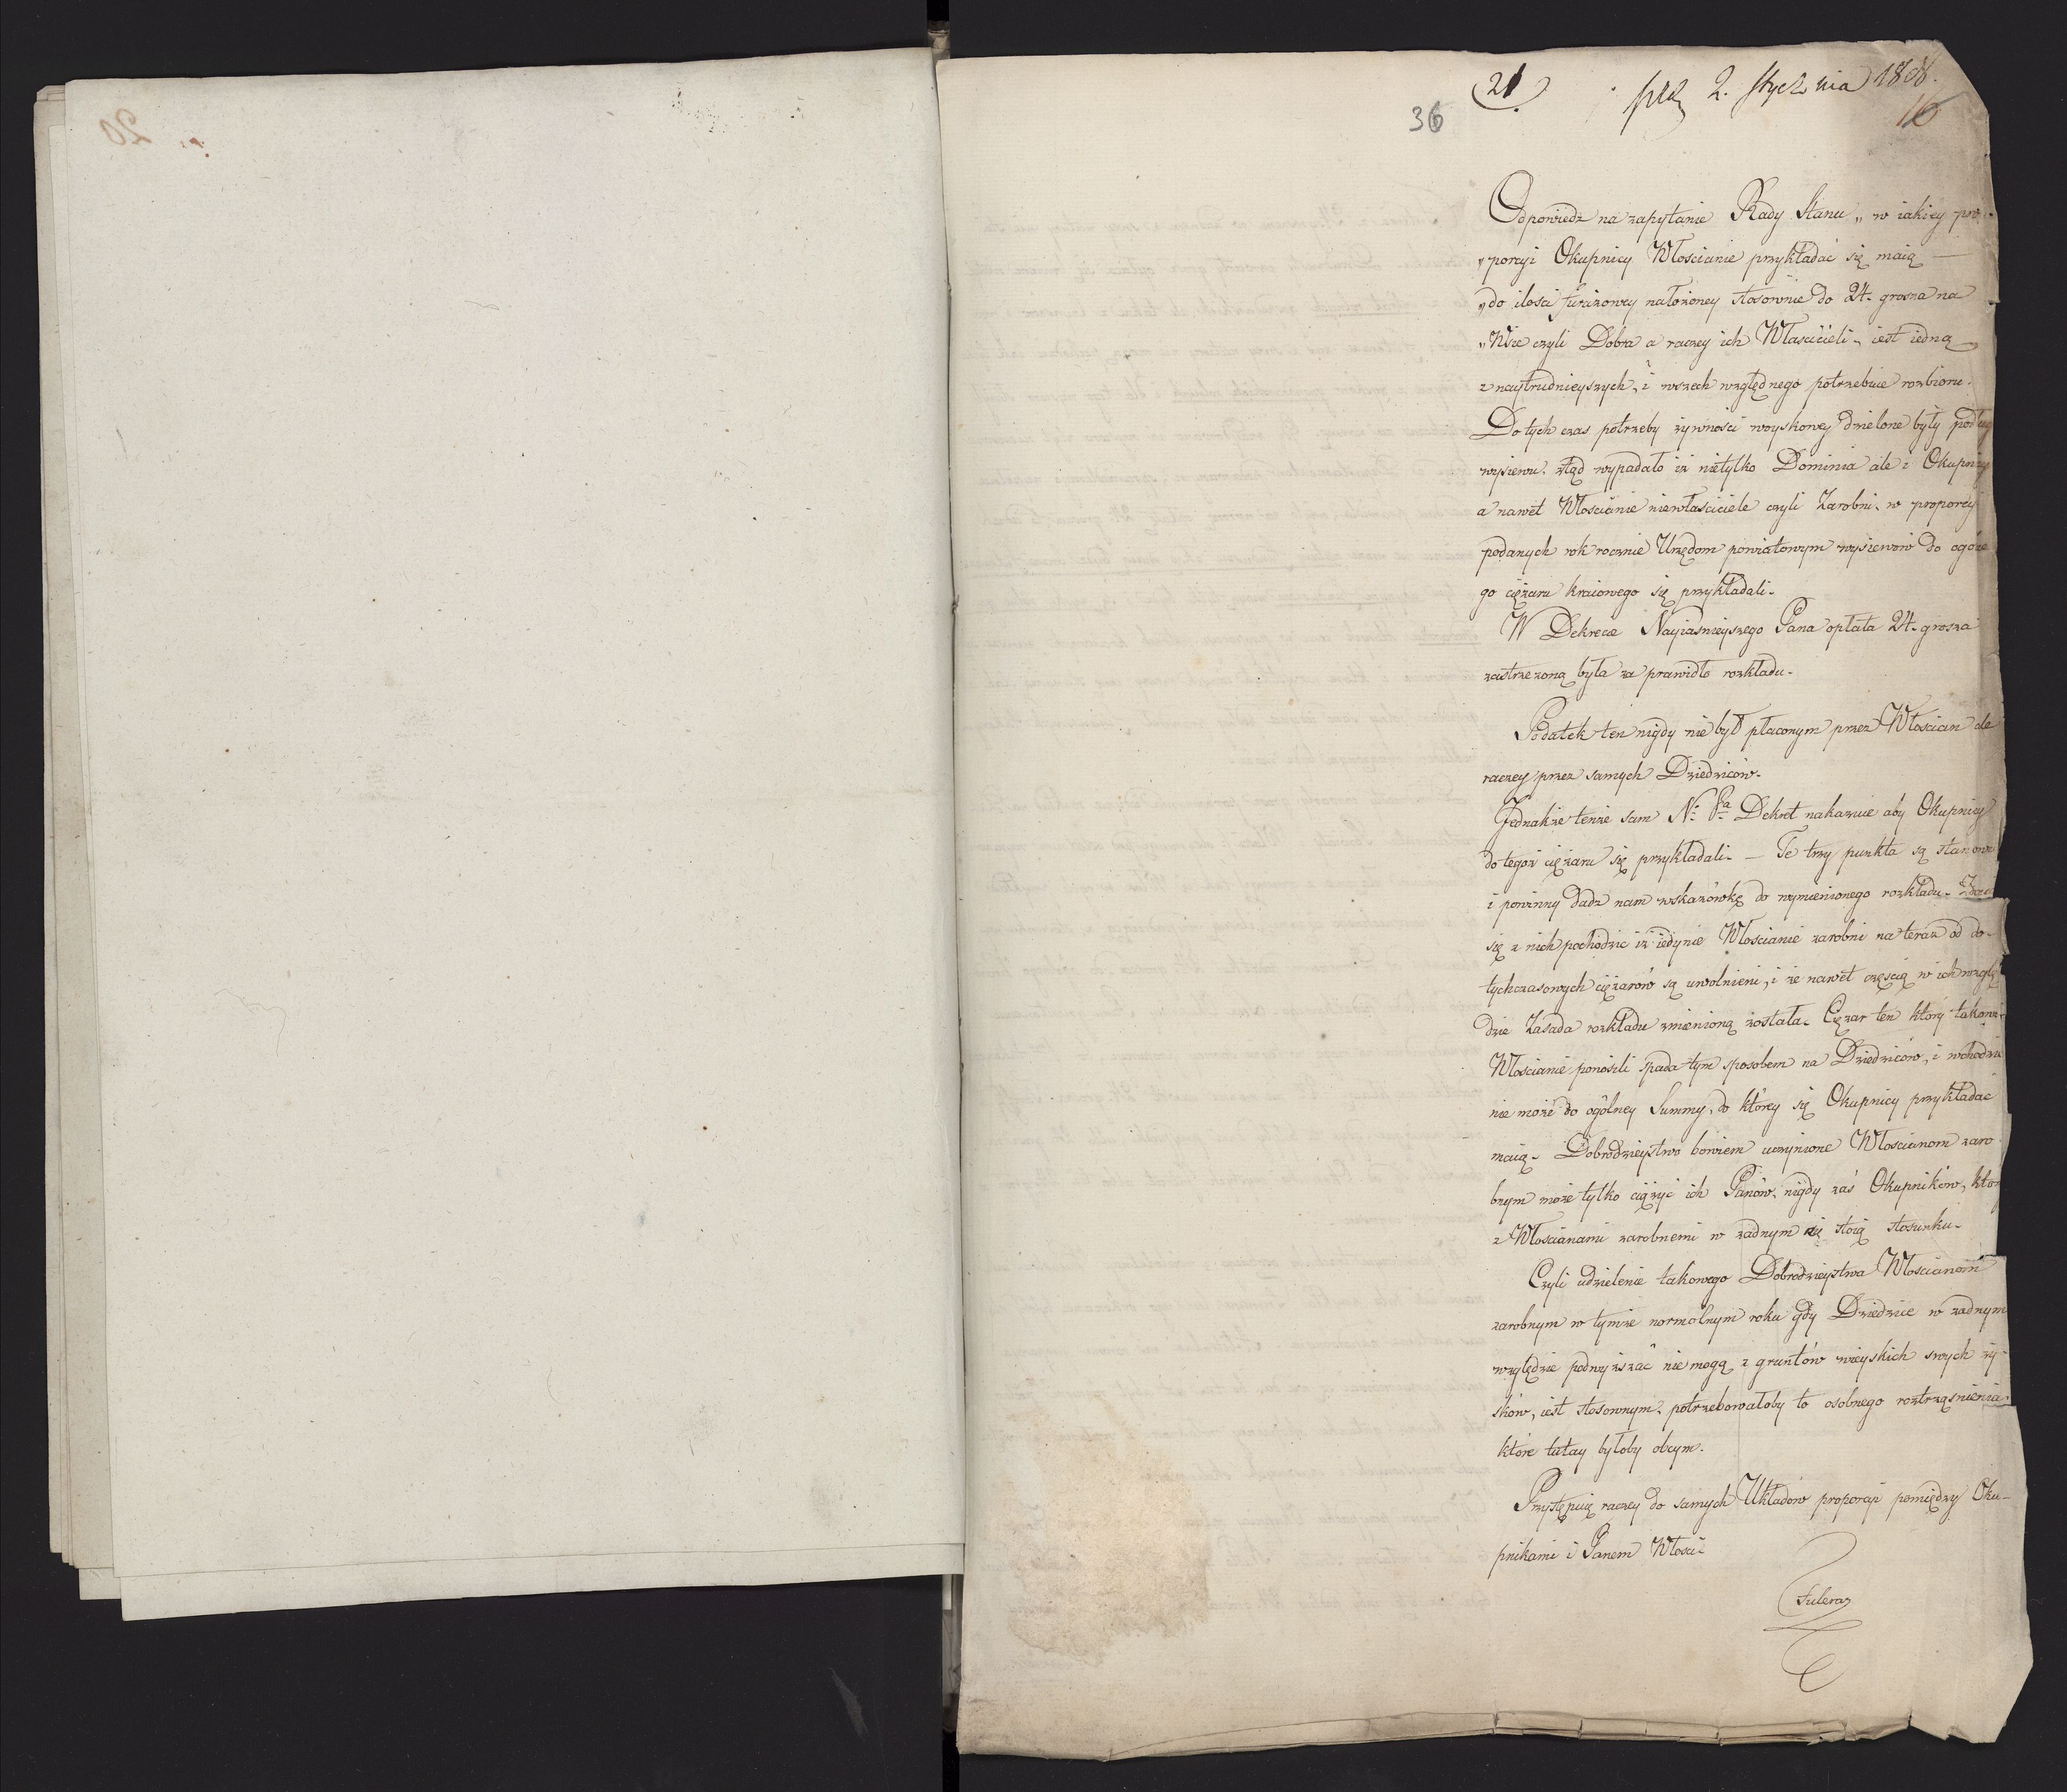 21
36
2. Stycznia 1808.
16
Odpowiedz na zapytanie Rady Stanu „w iakiey pro-
„porcyi Okupnicy Włoscianie przykładać się maią —
„do ilosci furażowey nałożoney stosownie do 24. grosza na
„Wsie czyli Dobra a raczey ich Własciicieli„ iest iedną
z naytrudnieyszych, i wszech względnego potrzebuie rozbioru.
Do tych czas potrzeby żywności woyskowey dzielone były podług
wysiewu. ztąd wypadało iż nietylko Dominia ale i Okupnicy
a nawet Włoscianie niewłasciciele czyli Zarobni. w proporcyi
podanych rok rocznie Urzędom powiatowym wysiewów do ogólne
go ciężaru kraiowego się przykładali.
W Dekrecie Nayiasnieyszego Pana opłata 24. grosza
zastrzeżoną była za prawidło rozkładu.
Podatek ten nigdy nie był płaconym przez Włoscian ale
raczey przez samych Dziedziców.
Jednakże tenże sam N: Pa Dekret nakazuie aby Okupnicy
do tegoż ciężaru się przykładali. — Te trzy punkta są
i powinny dadz nam wskazówkę do wymienionego rozkładu.
się z nich pochodzic iż iedynie Włoscianie zarobni na teraz od do-
tychczasowych ciężarów są uwolnieni, i że nawet częscią w ich wzglę
dzie Zasada rozkładu zmienioną została. Ciężar ten który takowi
Włoscianie ponosili spada tym sposobem na Dziedziców, i wchodzić
nie może do ogólney Summy, do którey się Okupnicy przykładać
maią. Dobrodzieystwo bowiem uczynione Włoscianom zaro
bnym może tylko ciążyć ich Panów, nigdy zaś Okupników, którzy
z Włoscianami zarobnemi w żadnym stoią stosunku.
Czyli udzielenie takowego Dobrodzieystwa Włoscianom
zarobnym w tymże normolnym roku gdy Dziedzice w żadnym
względzie podwyższać nie mogą z gruntów wieyskich swych zy-
sków, iest stosownym. potrzebowałoby to osobnego roztrząsnienia
które tutay byłoby obcym.
Przystępuię raczey do samych Układów proporcyi pomiędzy Oku-
pnikami i Panem Włosci